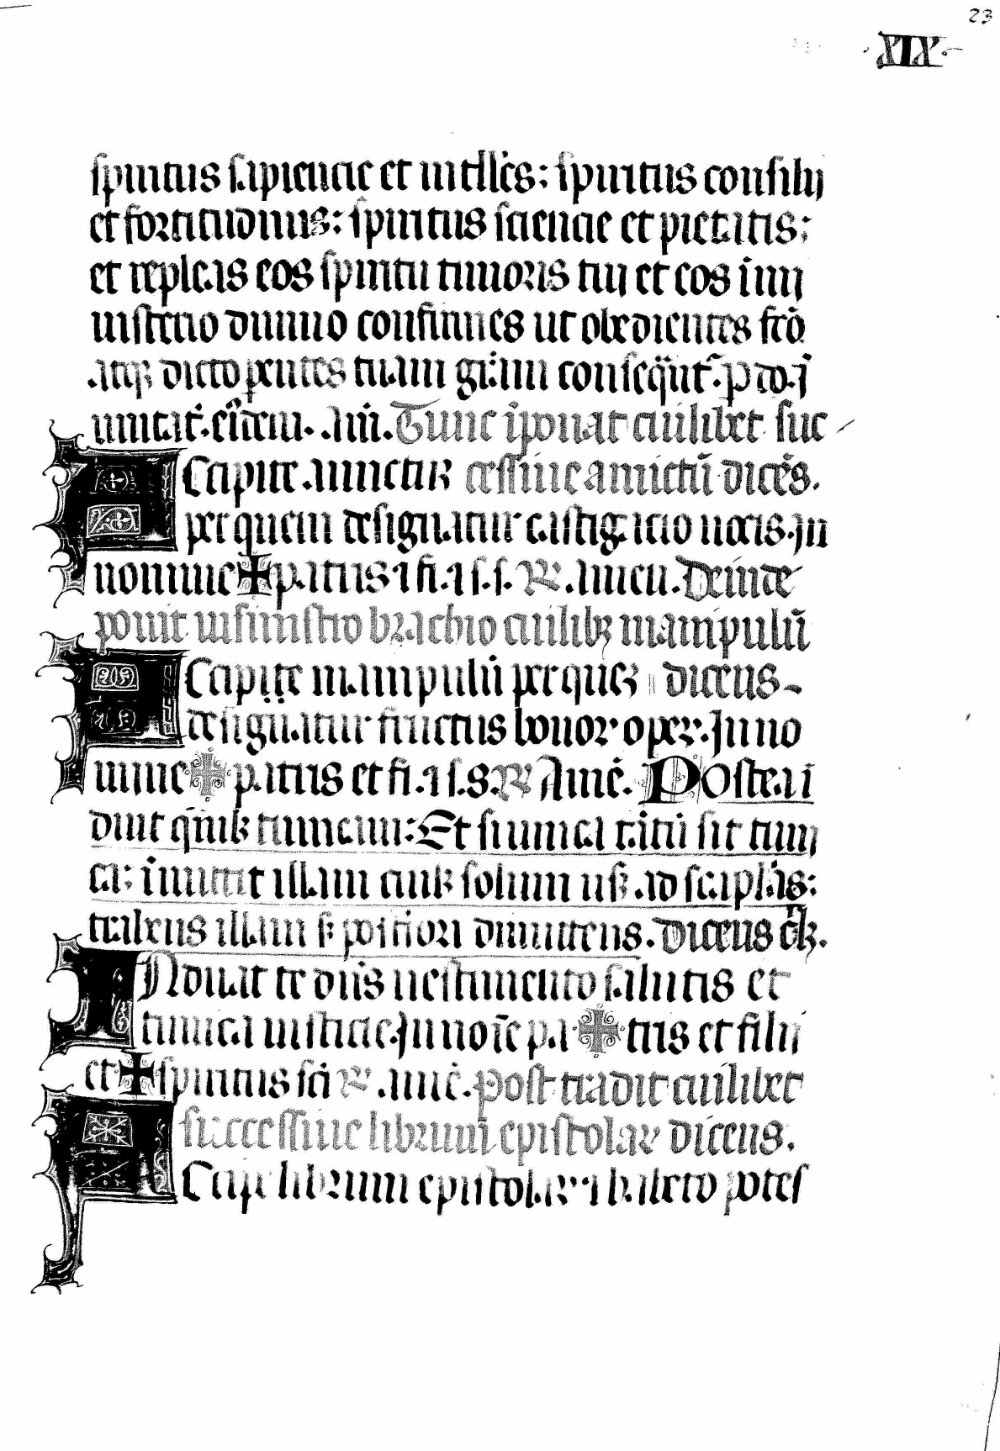 23
·XIX·
spiritus sapiencie et intellc̄s: spiritus consilij
et fortitudinis: spiritus sciencie et pietatis:
et repleas eos spiritu timoris tui et eos in mi
nisterio diuino confirmes ut obedientes fc̄o
atq3 dicto parentes tuam grām consequāt.
unitat̄. eiusdem. Am̄. Tunc īponat cuilibet suc
Accipite amictum cessiue amictū dicēs.
per quem designatur castigatio uocis. In
nomine ✠ patris ⁊ fi. ⁊ s. s. R̄ Amen. Deinde
ponit in sinistro brachio cuilib3 manipulū
Accipite manipulū per quem dicens
designatur fructus bonor. oper. In no
mine ✠ patris et fi. ⁊ s. s. R̄ Amē. Postea i
duit quēlib3 tunicam: Et si unica tātū sit tuni
ca: īmittit illam cuilib3 solum usq3 ad scaplas:
trahens illam dimittens. Dicens
INduat te dn̄s uestimento salutis et
tunica iusticie. In noīe pa ✠ tris et filii
et ✠ spiritus sc̄i R̄ Amē. Post tradit cuilibet
successiue librum epistolar. dicens.
Accipe librum epistolar. ⁊ habeto potes